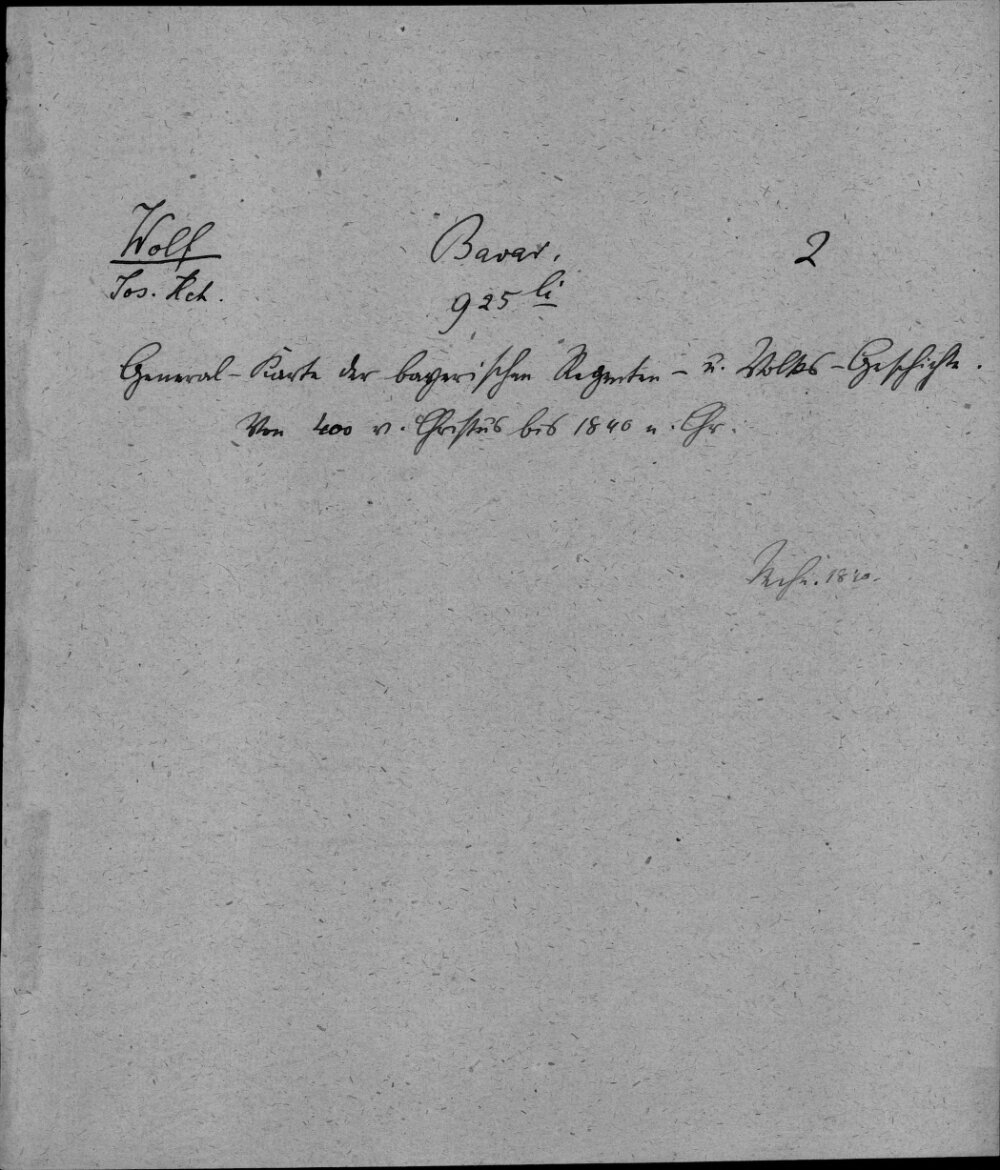 Wolf Bavar. 2
Jos. Hch. 925 li
General-Karte der bayerischen Regenten- u. Volks-Geschichte.
Von 400 v. Christus bis 1840 n. Chr.
1840.